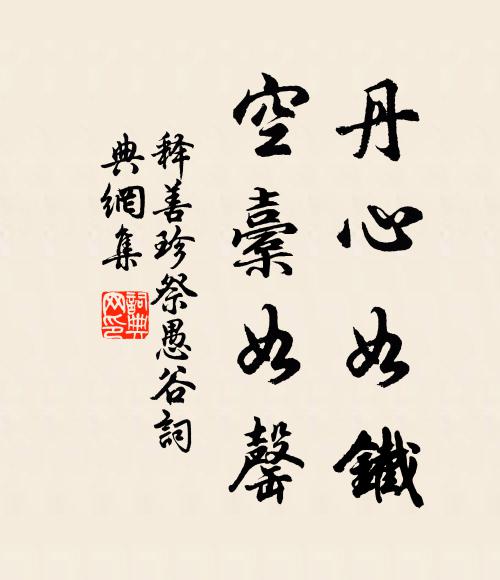 丹心如鐵
空橐如罄
释善珍祭愚谷詞
典網集
詞典
网印